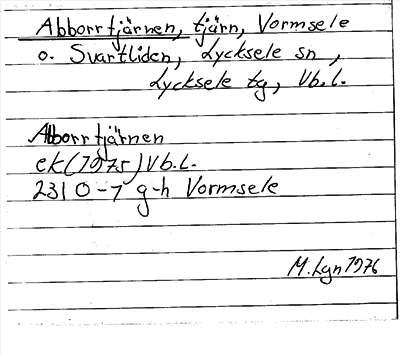 Abborrtjärnen, tjärn, Vormsele
o. Svartliden, Lycksele sn,
Lycksele tg, Vb.l.
Abborrtjärnen
ek(1975)Vb.l.
231 0-7 g-h Vormsele
M.Lgn 1976